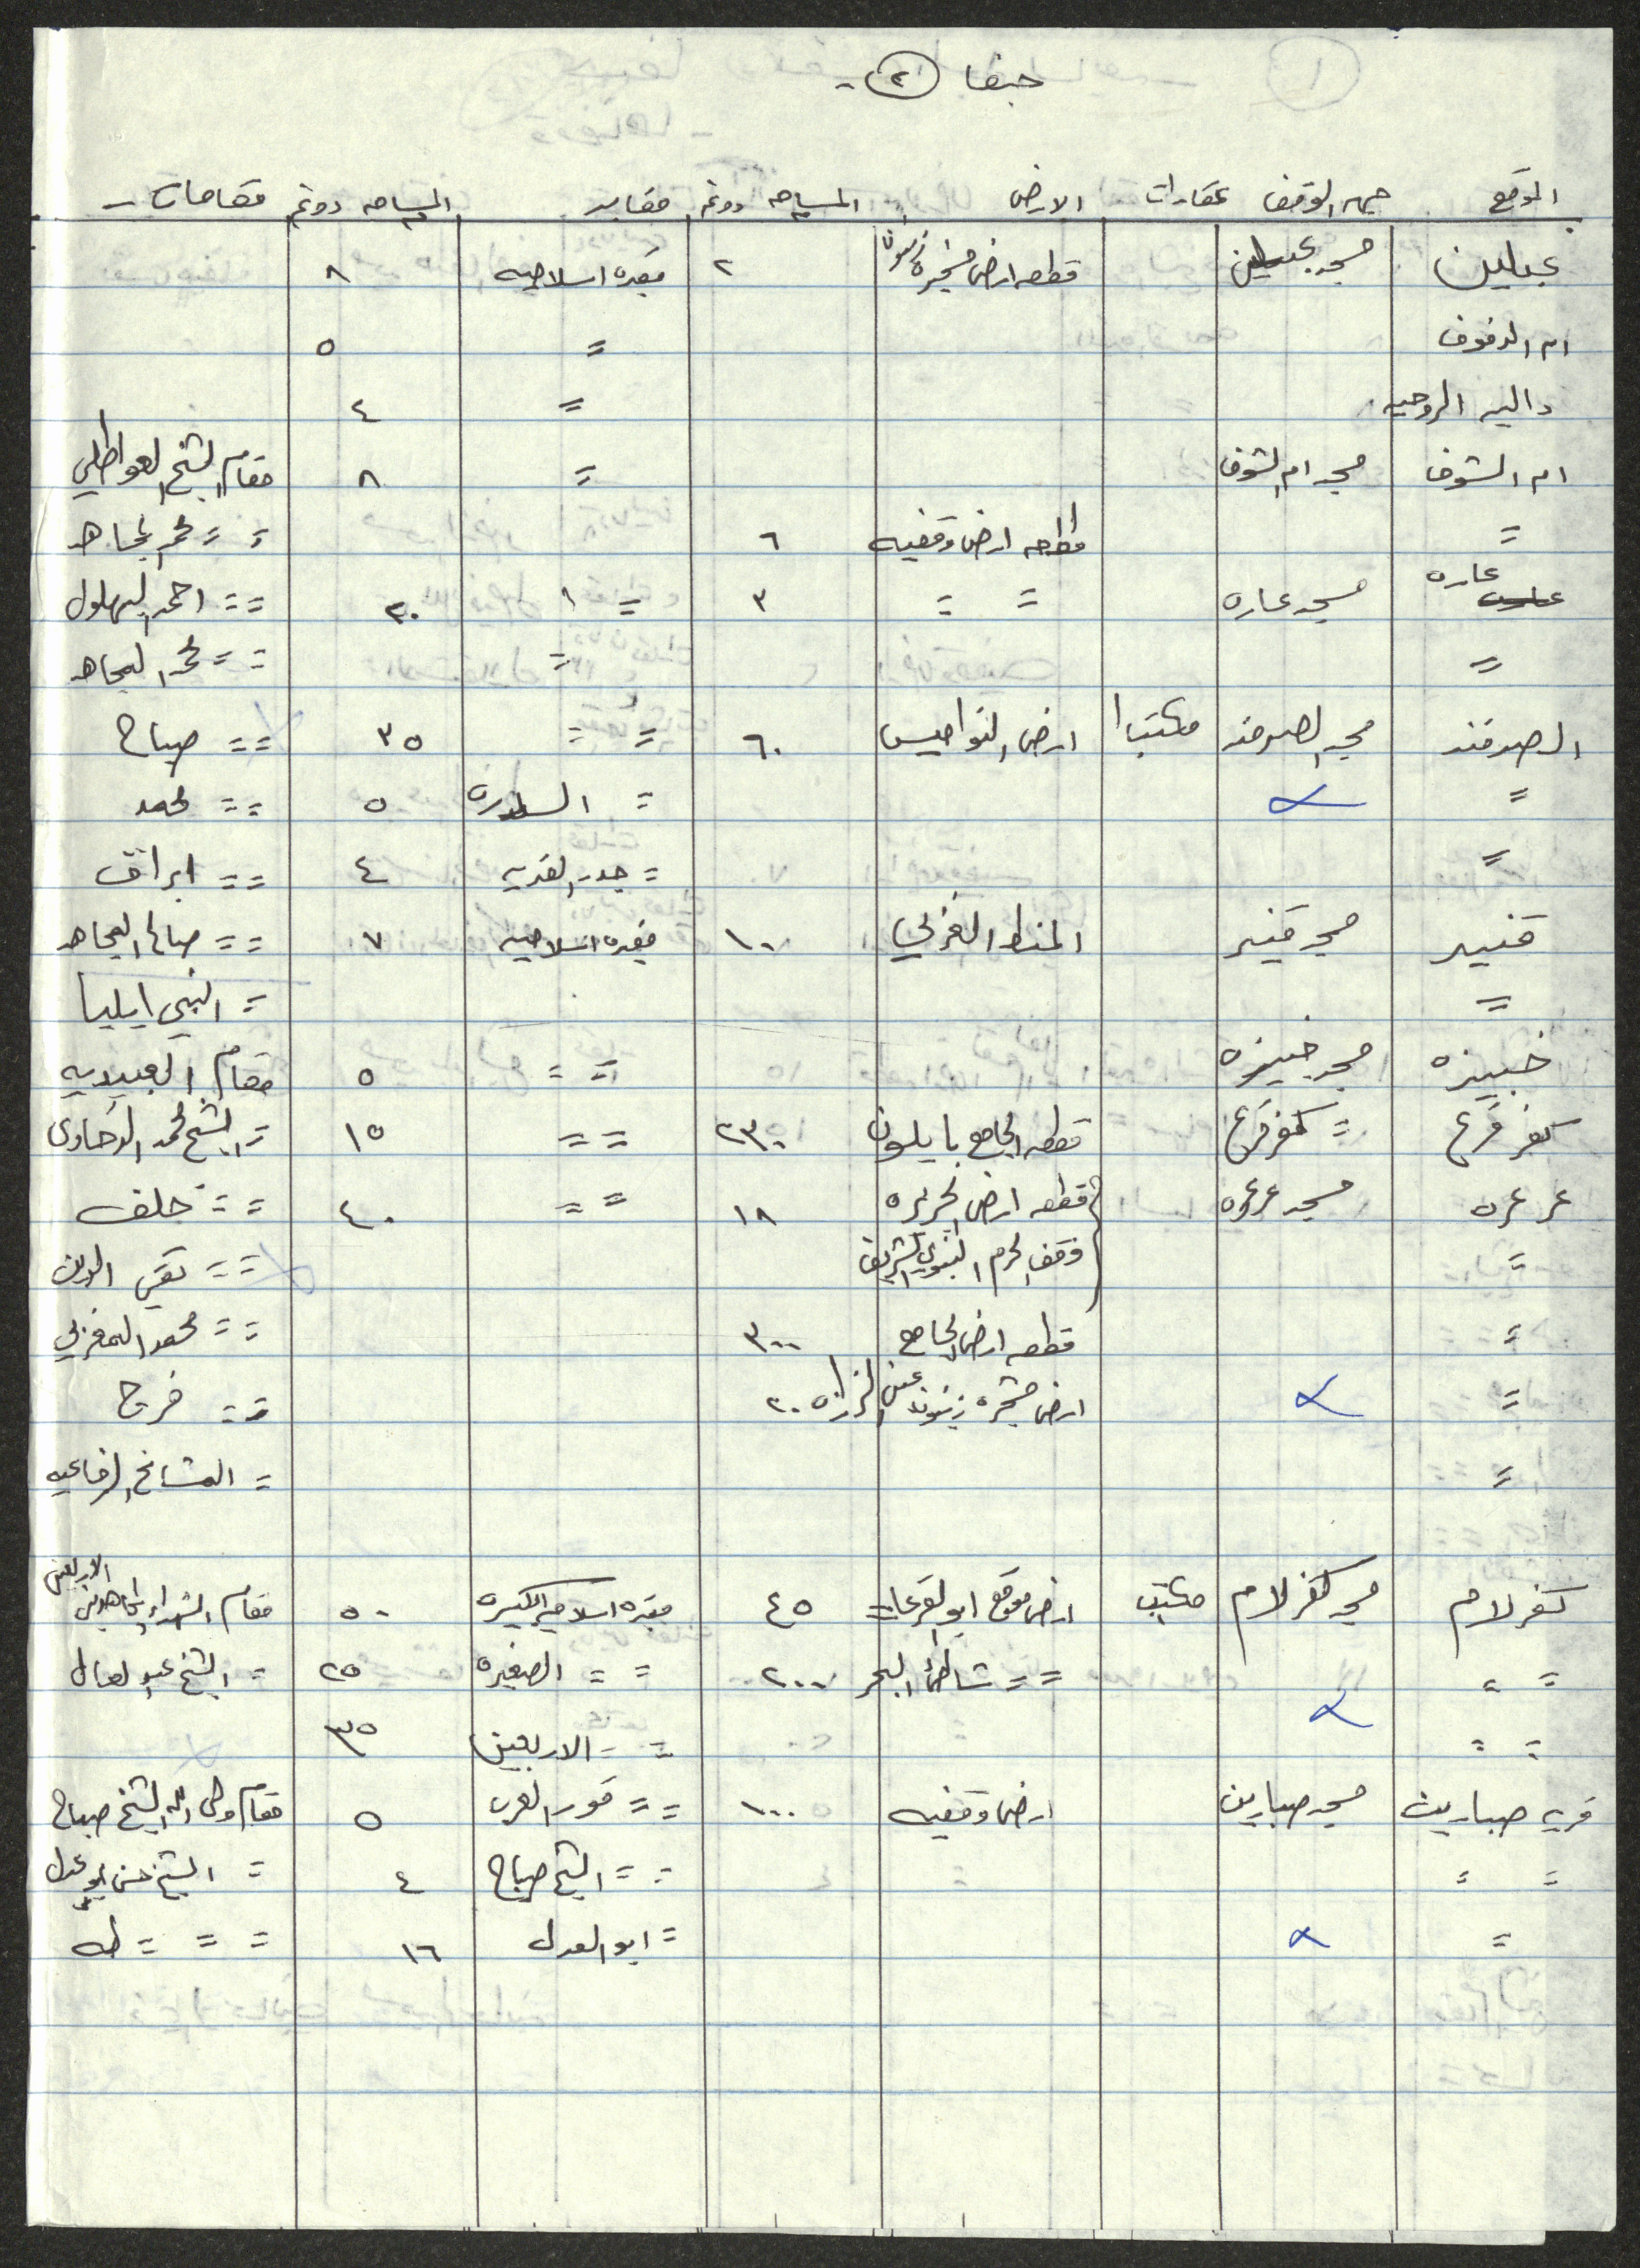 حيفا (٢) -
الموقع جهه الوقف عقارات الارض المساحه دونم مقابر المساحه دونم مقامات -
عبلين مسجد عبلين قطعه ارض مشجره زيتون ٢ مقبره اسلاميه ٨
ام الدفوف = ٥
داليه الروحيه = ٤
ام الشوف مسجد ام الشوف = ٨ مقام الشيخ
= قطعه ارض وقفيه ٦ = = محمد المجاهد
عاره مسجد عاره = = ٣ = ١ ٢٠ = = احمد البهلول
= = = = محمد المجاهد
الصرفند مسجد الصرفند مكتب ١ ارض النواميس ٦٠ = = ٣٥ = = صباح
= = ٥ = = محمد
= = جدر القريه ٤ = = ابراق
قنير مسجد قنير المنط الغربي ١٠٠ مقبره اسلاميه ٧ = = صالح المجاهد
= = النبي ايليا
خبيزه مسجد خبيزه = = ٥ مقام العبيديه
كفر قرع = كفر قرع قطعه الجامع بايلون ٢٣٠٠ = = ١٥ = الشيخ محمد
عرعره مسجد عرعره قطعه ارض الجزيره ١٨ = = ٤٠ = = خلف
= وقف الحرم النبوي الشريف = = تقي الدين
= قطعه ارض الجامع ٣٠٠ = = محمد المغربي
= ارض مشجره زيتون عين ٢٠٠ = = فرج
= = المشايخ الرفاعيه
كفر لام مسجد كفر لام مكتب ارض موقع ابو القرعان ٤٥ مقبره اسلاميه الكبيره ٥٠ مقام الشهداء المجاهدين الاربعين
= = = = شاطئ البحر ٢٠٠٠ = = الصغيره ٢٥ = الشيخ عبد العال
= = = = الاربعين ٣٥
قريه صبارين مسجد صبارين ارض وقفيه ١٠٠٠ = = قور العرب ٥ مقام ولي الله الشيخ صباح
= = = = الشيخ صباح ٤ = الشيخ حسن ابو عدل
= = ابو العدل ١٦ = = = طه